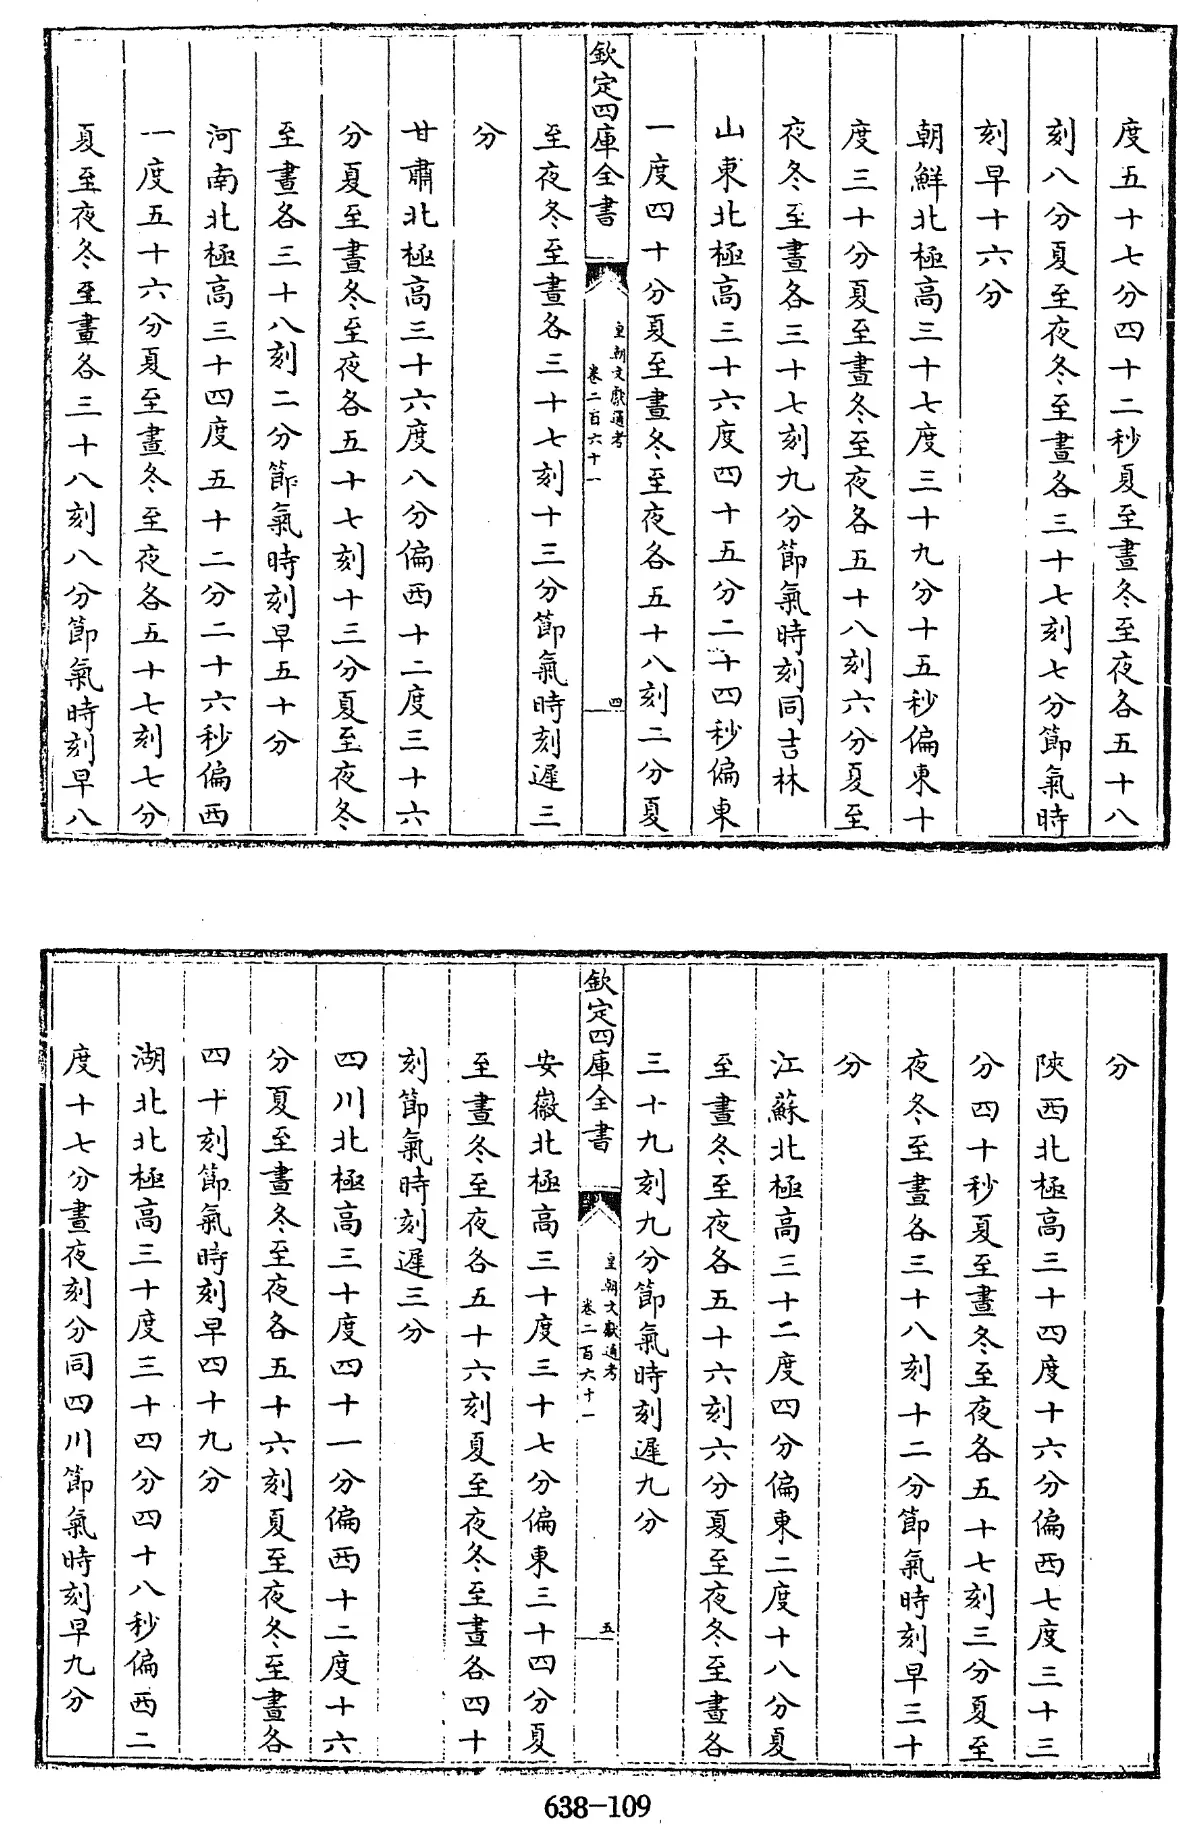 度五十七分四十二秒夏至晝冬至夜各五十八
刻八分夏至夜冬至晝各三十七刻七分節氣時
刻早十六分
朝鮮北極高三十七度三十九分十五秒偏東十
度三十分夏至晝冬至夜各五十八刻六分夏至
夜冬至晝各三十七刻九分節氣時刻同吉林
山東北極高三十六度四十五分二十四秒偏東
一度四十分夏至晝冬至夜各五十八刻二分夏
欽定四庫全書
皇朝文獻通考
卷二百六十一
四
至夜冬至晝各三十七刻十三分節氣時刻遲三
分
甘肅北極高三十六度八分偏西十二度三十六
分夏至晝冬至夜各五十七刻十三分夏至夜冬
至晝各三十八刻二分節氣時刻早五十分
河南北極高三十四度五十二分二十六秒偏西
一度五十六分夏至晝冬至夜各五十七刻七分
夏至夜冬至晝各三十八刻八分節氣時刻早八
分
陜西北極高三十四度十六分偏西七度三十三
分四十秒夏至晝冬至夜各五十七刻三分夏至
夜冬至晝各三十八刻十二分節氣時刻早三十
分
江蘇北極高三十二度四分偏東二度十八分夏
至晝冬至夜各五十六刻六分夏至夜冬至晝各
三十九刻九分節氣時刻遲九分
欽定四庫全書
皇朝文獻通考
卷二百六十一
五
安徽北極高三十度三十七分偏東三十四分夏
至晝冬至夜各五十六刻夏至夜冬至晝各四十
刻節氣時刻遲三分
四川北極高三十度四十一分偏西十二度十六
分夏至晝冬至夜各五十六刻夏至夜冬至晝各
四十刻節氣時刻早四十九分
湖北北極高三十度三十四分四十八秒偏西二
度十七分晝夜刻分同四川節氣時刻早九分
638-109